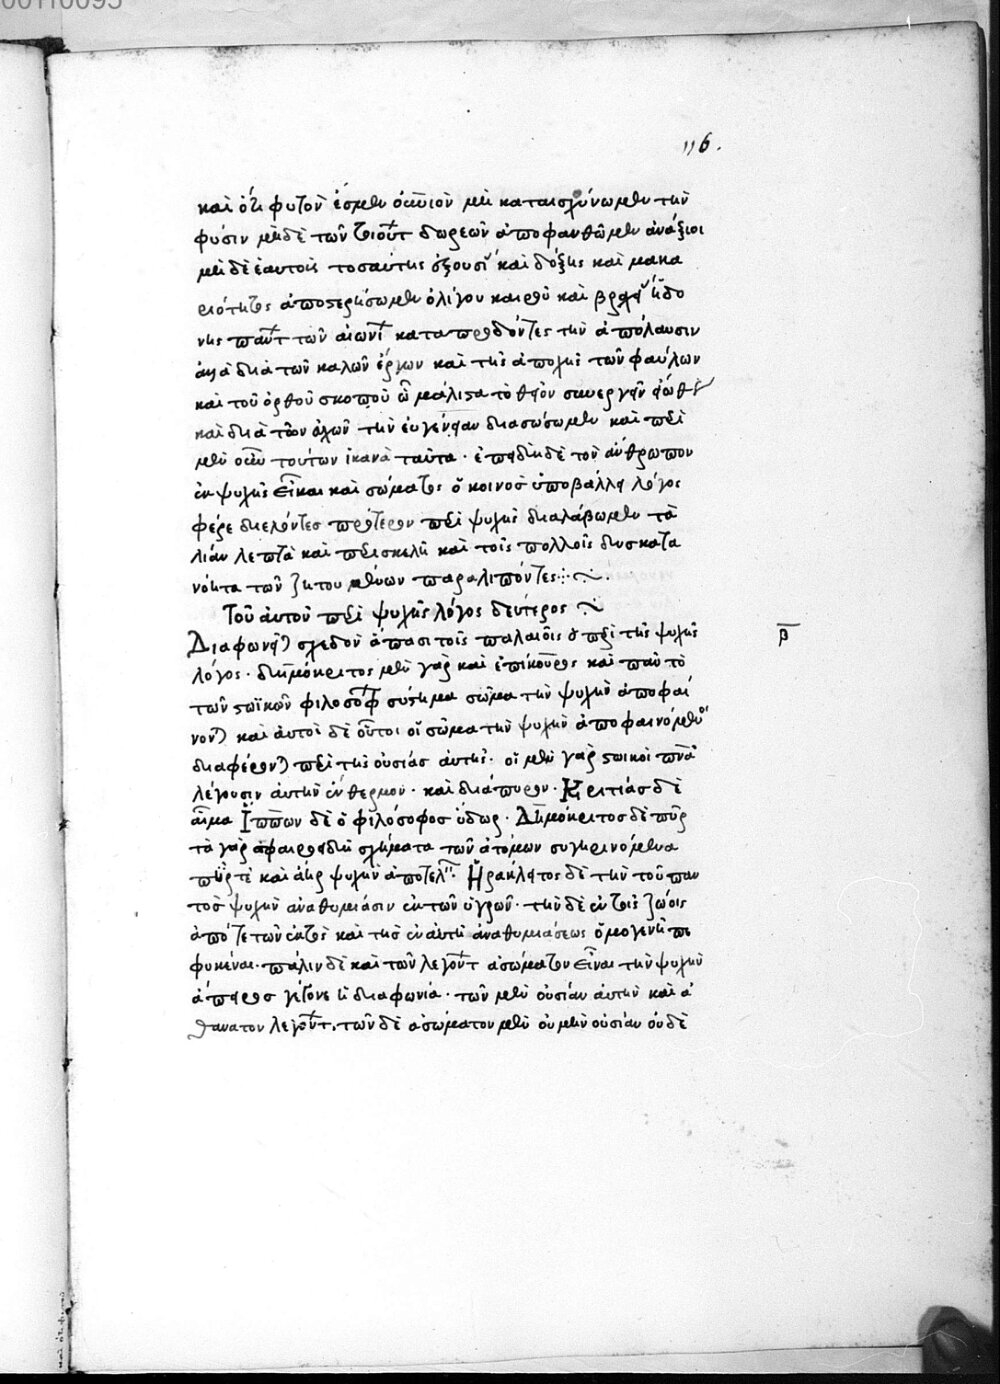 116.
καὶ ὅτι φυτὸν ἐσμὲν οὐράνιον μὴ καταισχύνωμεν τὴν
φύσιν μηδὲ τῶν τοιούτ δωρεῶν ἀποφανθῶμεν ἀνάξιοι
μὴ δὲ ἑαυτοὺς τοσαύτης ἐξουσί καὶ δόξης καὶ μακα
ριότητος ἀποστερήσωμεν ὀλίγου καιροῦ καὶ βραχεί ἡδο
νῆς πάντ τῶν αἰωνί καταπροδόντες τὴν ἀπόλαυσιν
ἀλλὰ διὰ τῶν καλῶν ἔργων καὶ τῆς ἀποχῆς τῶν φαύλων
καὶ τοῦ ὀρθοῦ σκοποῦ ᾧ μάλιστα τὸ θεῖον συνεργεῖν εἴωθεν
καὶ διὰ τῶν εὐχῶν τὴν εὐγένειαν διασώσωμεν καὶ περὶ
μὲν οὖν τούτων ἱκανὰ ταῦτα · ἐπειδὴ δὲ τὸν ἄνθρωπον
ἐκ ψυχῆς εἶναι καὶ σώματος ὁ κοινὸς ὑποβάλλει λόγος
φέρε διελόντες πρότερον περὶ ψυχῆς διαλάβωμεν τὰ
λίαν λεπτὰ καὶ περισκελῆ καὶ τοῖς πολλοῖς δυσκατα
νόητα τῶν ζητουμένων παραλιπόντες :~
Τοῦ αὐτοῦ περὶ ψυχῆς λόγος δεύτερος ~
β
Διαφωνεῖ) σχεδὸν ἅπασι τοῖς παλαιοῖς ὁ περὶ τῆς ψυχῆς
λόγος · δημόκριτος μὲν γὰρ καὶ ἐπίκουρος καὶ πᾶν τὸ
τῶν στωϊκῶν φιλοσόφ σύστημα σῶμα τὴν ψυχὴν ἀποφαί
νον) καὶ αὐτοὶ δὲ οὗτοι οἱ σῶμα τὴν ψυχὴν ἀποφαινόμενοι
διαφέρον) περὶ τῆς οὐσίας αὐτῆς · οἱ μὲν γὰρ στωικοὶ πνᾶ
λέγουσιν αὐτὴν ἔνθερμον · καὶ διάπυρον · Κριτίας δὲ
αἷμα Ἵππων δὲ ὁ φιλόσοφος ὕδωρ · Δημόκριτος δὲ πῦρ
τὰ γὰρ σφαιροειδῆ σχήματα τῶν ἀτόμων συγκρινόμενα
πῦρ τὲ καὶ ἀὴρ ψυχὴν ἀποτελ · Ἡράκλειτος δὲ τὴν τοῦ παν
τὸς ψυχὴν ἀναθυμίασιν ἐκ τῶν ὑγρῶν · τὴν δὲ ἐν τοῖς ζώοις
ἀπό τε τῶν ἐκτὸς καὶ τῆς ἐν αὐτῆ ἀναθυμιάσεως ὁμογενῆ πε
φυκέναι · πάλιν δὲ καὶ τῶν λεγόντ ἀσώματον εἶναι τὴν ψυχὴν
ἄπειρος γέγονε ἡ διαφωνία · τῶν μὲν οὐσίαν αὐτὴν καὶ ἀ
θανατον λεγόντ · τῶν δὲ ἀσώματον μὲν οὐ μὴν οὐσίαν οὐδὲ